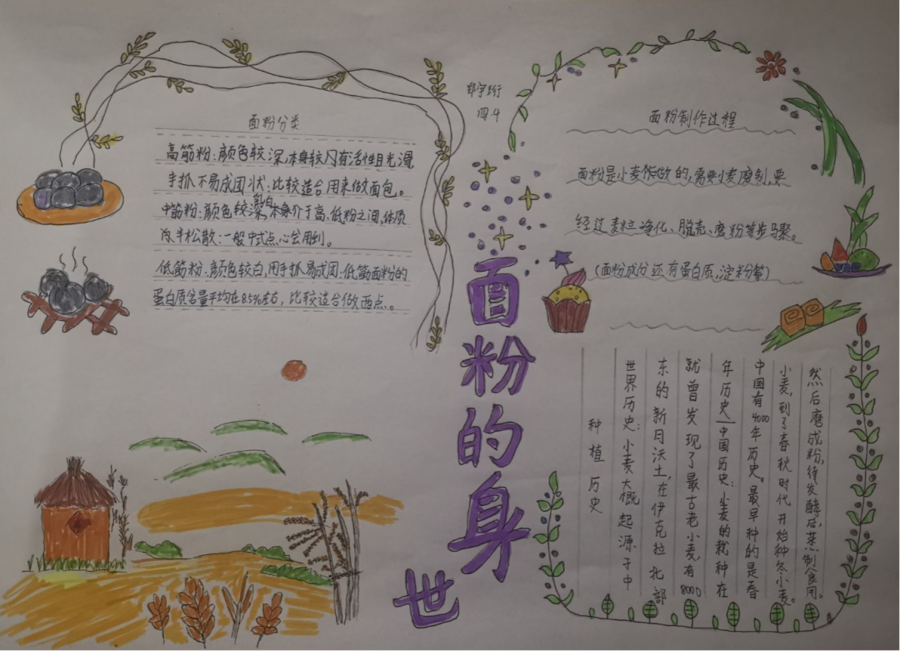 面粉分类
高筋粉:颜色较深,本身较有活性且光滑
手抓不易成团状:比较适合用来做面包。
中筋粉:颜色较乳白,本身介于高、低粉之间,体质
为半松散:一般中式点心会用到。
低筋粉:颜色较白,用手抓易成团:低筋面粉的
蛋白质含量平均在8.5%左右,比较适合做西点。
四.4
面粉的身世
面粉制作过程
面粉是小麦作做的,需要小麦磨制,要
经过麦粒净化、脱壳、磨粉等步骤。
(面粉成分还有蛋白质,淀粉等)
种植历史
世界历史:小麦大概起源于中
东的新月沃土,在伊克拉北部
就曾发现了最古老小麦,有8000
年历史,中国历史:小麦的栽种在
中国有4000年历史。最早种的是春
小麦,到了春秋时代开始种冬小麦。
然后磨成粉,待发酵后,蒸制食用。